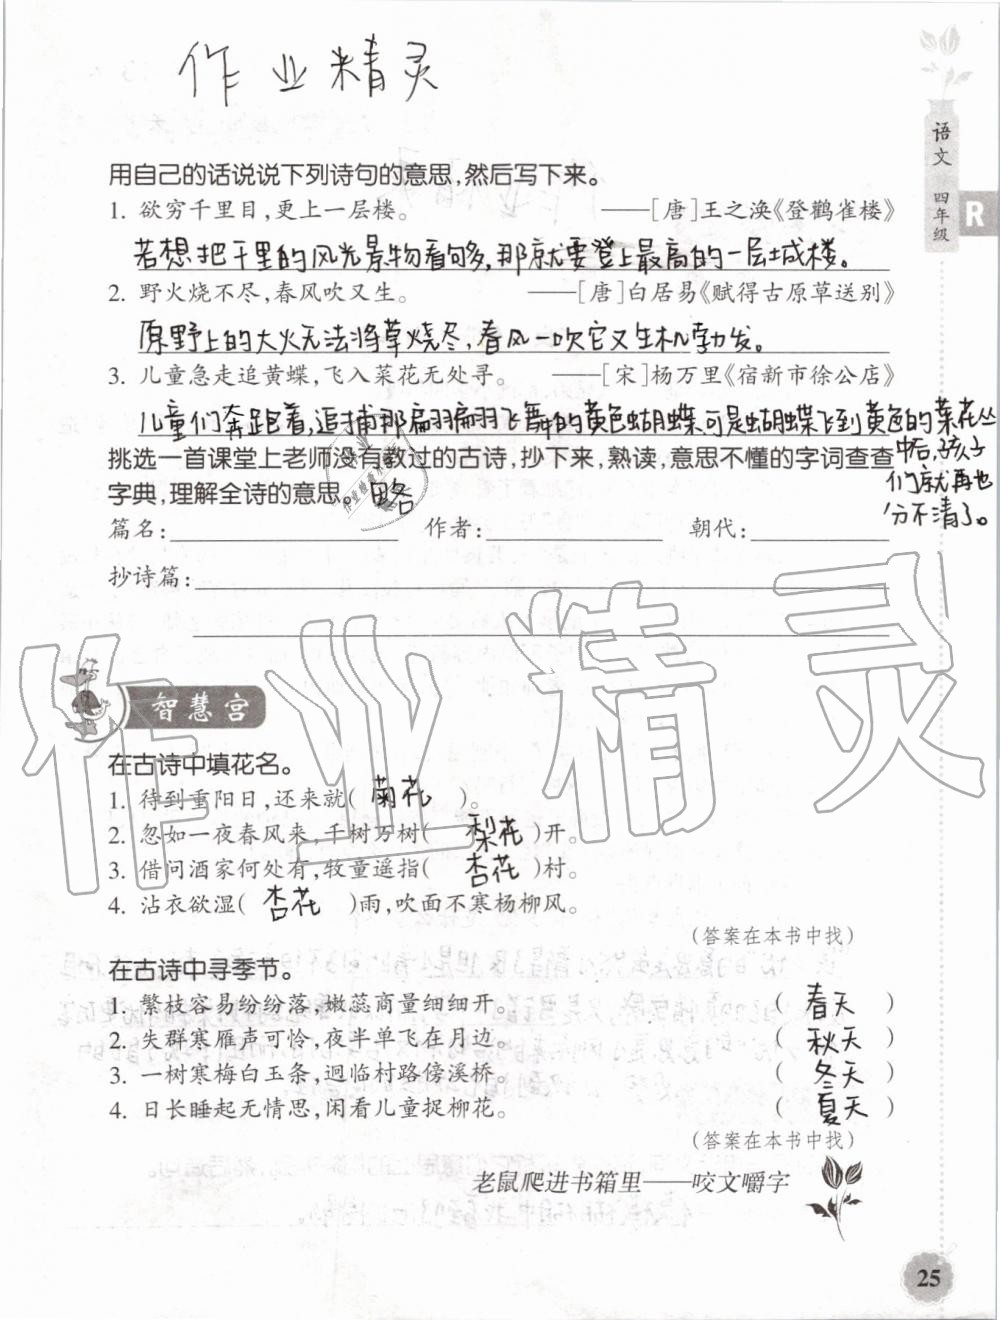 作业精灵
语文 四年级
R
用自己的话说说下列诗句的意思,然后写下来。
1. 欲穷千里目,更上一层楼。 ——[唐]王之涣《登鹳雀楼》
若想把千里的风光景物看够,那就要登上最高的一层城楼。
2. 野火烧不尽,春风吹又生。 ——[唐]白居易《赋得古原草送别》
原野上的大火无法将草烧尽,春风一吹它又生机勃发。
3. 儿童急走追黄蝶,飞入菜花无处寻。 ——[宋]杨万里《宿新市徐公店》
儿童们奔跑着,追捕那翩翩飞舞的黄色蝴蝶,可是蝴蝶飞到黄色的菜花丛
中后,孩子
们就再也
分不清了。
挑选一首课堂上老师没有教过的古诗,抄下来,熟读,意思不懂的字词查查
字典,理解全诗的意思。略
篇名: 作者: 朝代:
抄诗篇:
作业精灵
智慧宫
在古诗中填花名。
1. 待到重阳日,还来就( 菊花 )。
2. 忽如一夜春风来,千树万树( 梨花 )开。
3. 借问酒家何处有,牧童遥指( 杏花 )村。
4. 沾衣欲湿( 杏花 )雨,吹面不寒杨柳风。
(答案在本书中找)
在古诗中寻季节。
1. 繁枝容易纷纷落,嫩蕊商量细细开。 ( 春天 )
2. 失群寒雁声可怜,夜半单飞在月边。 ( 秋天 )
3. 一树寒梅白玉条,迥临村路傍溪桥。 ( 冬天 )
4. 日长睡起无情思,闲看儿童捉柳花。 ( 夏天 )
(答案在本书中找)
老鼠爬进书箱里——咬文嚼字
25